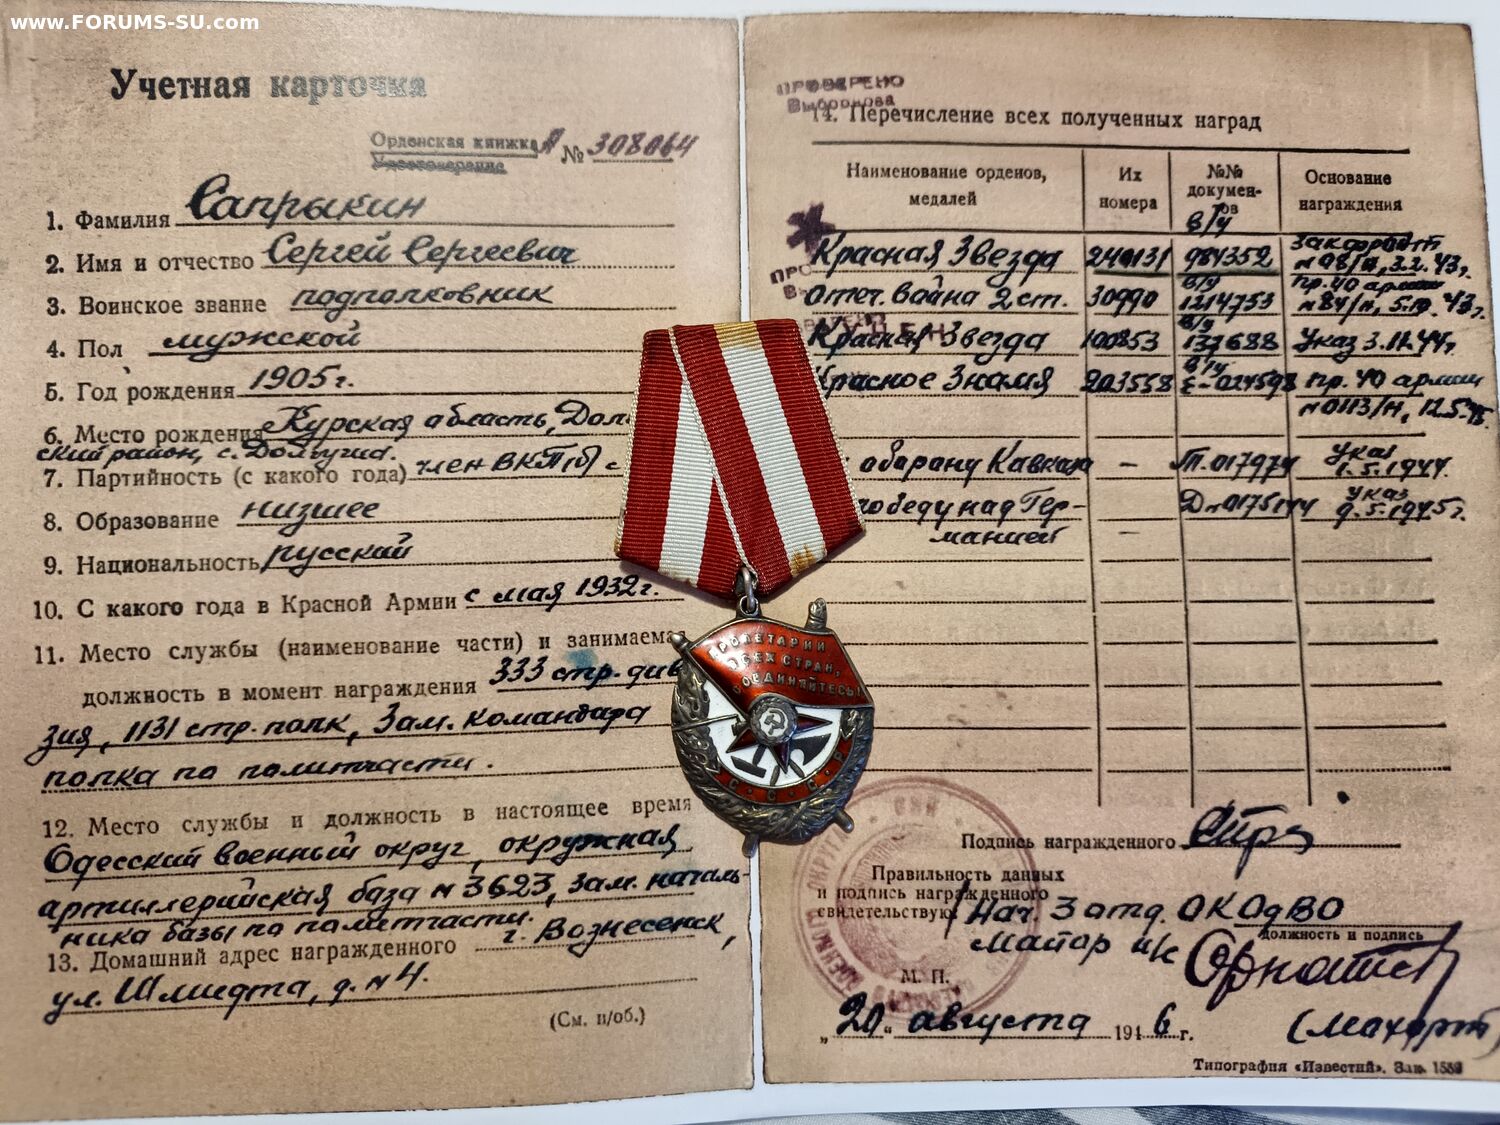 www.FORUMS-SU.com
Учетная карточка
Орденская книжка А № 308064
Удостоверение
1. Фамилия Сапрыкин
2. Имя и отчество Сергей Сергеевич
3. Воинское звание подполковник
4. Пол мужской
5. Год рождения 1905г.
6. Место рождения Курская область,
ский район, с.
7. Партийность (с какого года) член ВКП(б) с
8. Образование низшее
9. Национальность русский
10. С какого года в Красной Армии с мая 1932г.
11. Место службы (наименование части) и занимаемая
должность в момент награждения 333 стр. диви
зия, 1131 стр. полк, Зам. командара
полка по политчасти.
12. Место службы и должность в настоящее время
Одесский военный округ, окружная
артиллерийская база № 3623, зам. началь-
ника базы по политчасти.
13. Домашний адрес награжденного г. Вознесенск,
ул. Шмидта, д. № 4.
(См. н/об.)
ПРОВЕРЕНО
Выборнова
14. Перечисление всех полученных наград
Наименование орденов, медалей Их номера №№ документов Основание награждения
в/у
Красная Звезда 240131 984352 Закфронт
№ 98/н, 3.2.43г.
Отеч. война 2 ст. 30990 в/у 1214753 пр. 40 армии
№ 84/н, 5.10.43г.
Красная Звезда 100853 в/у 137688 Указ 3.11.44г.
Красное Знамя 203558 в/у Е-024598 пр. 40 армии
№ 0113/н, 12.5.45
оборону Кавказа — Т.017974 Указ 1.5.1944.
победу над Гер-
манией — Д № 0175144 Указ 9.5.1945г.
ПРОЛЕТАРИИ
ВСЕХ СТРАН,
СОЕДИНЯЙТЕСЬ!
С·С·С·Р
Подпись награжденного
Правильность данных
и подпись награжденного
свидетельствую Нач. 3 отд. ОКОдВО
должность и подпись
Майор и/с
М. П.
„20“ августа 1946 г.
Типография «Известий». Зак.